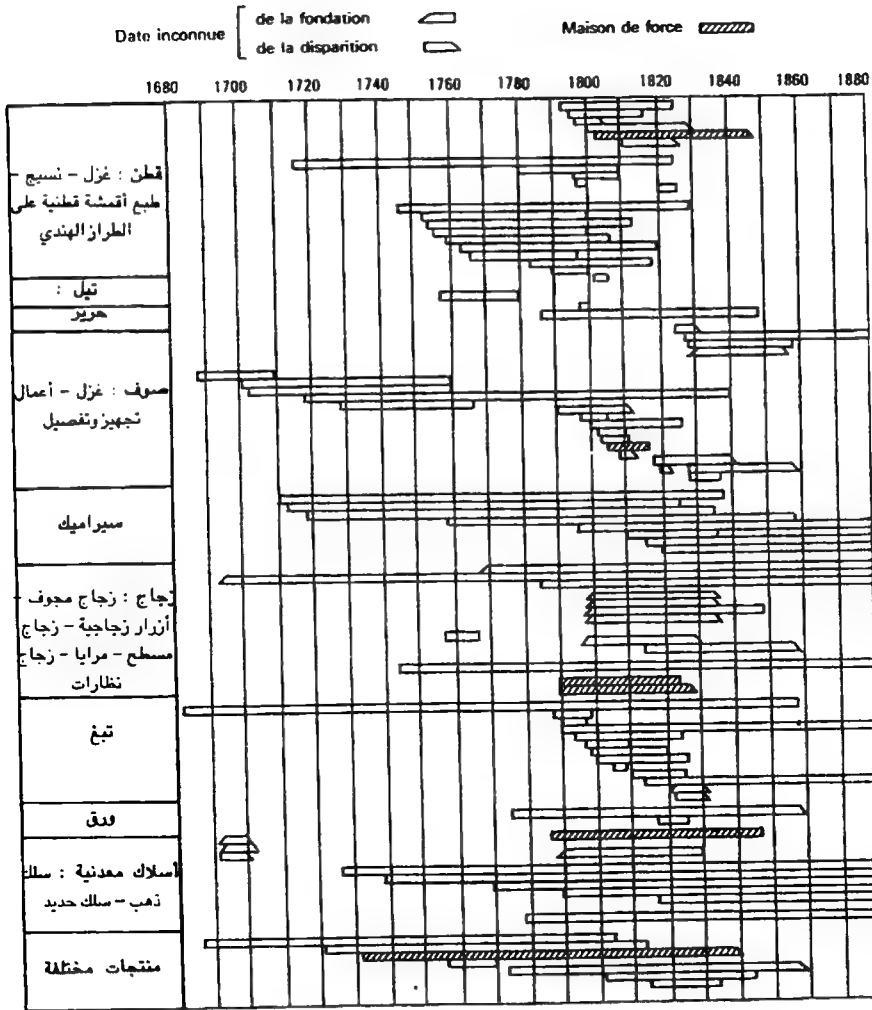 Date inconnue
de la fondation
de la disparition
Maison de force
1680 1700 1720 1740 1760 1780 1800 1820 1840 1860 1880
قطن : غزل – نسيج –
طبع أقمشة قطنية على
الطراز الهندي
تيل :
حرير
صوف : غزل – أعمال
تجهيز وتفصيل
سيراميك
زجاج : زجاج مجوف –
أزرار زجاجية – زجاج
مسطح – مرايا – زجاج
نظارات
تبغ
ورق
أسلاك معدنية : سلك
ذهب – سلك حديد
منتجات مختلفة